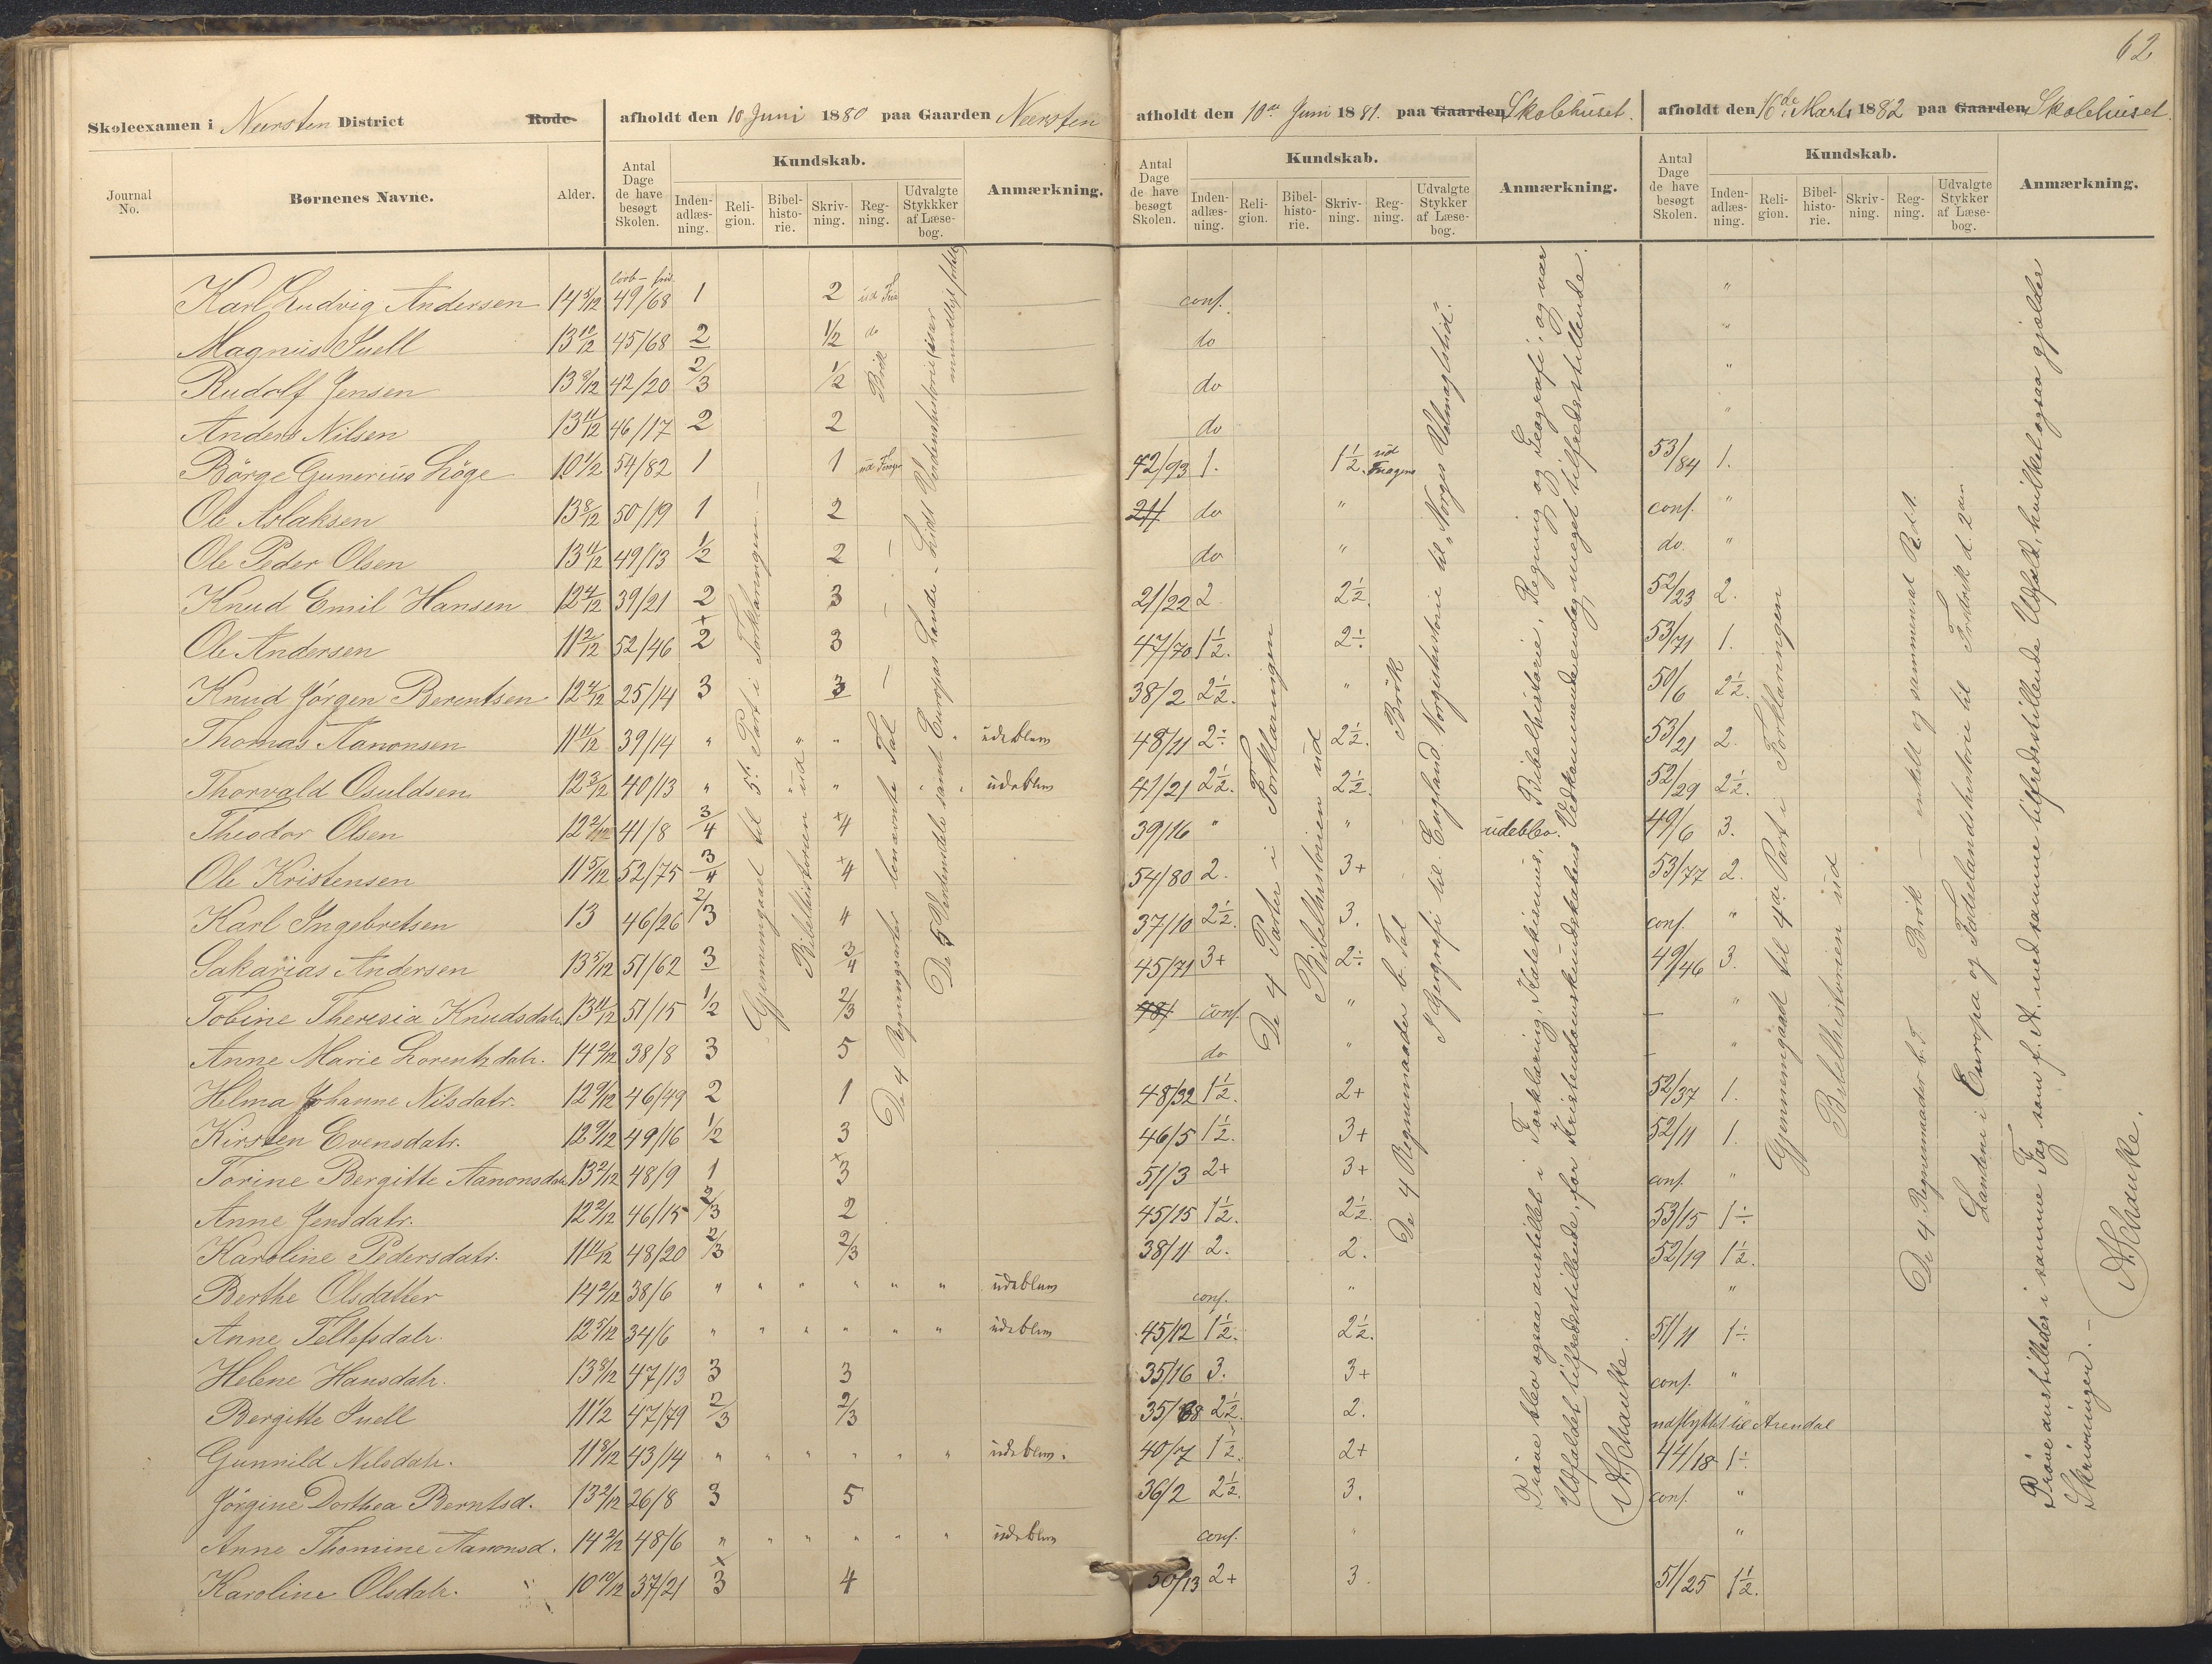 62
Skoleexamen i Neersten District Rode afholdt den 10 Juni 1880 paa Gaarden Neersten
afholdt den 10de Juni 1881. paa Gaarden Skolehuset.
afholdt den 16de Marts 1882 paa Gaarden Skolehuset.
Journal No. Børnenes Navne. Alder. Antal Dage de have besøgt Skolen. Kundskab. Inden-adlæs-ning. Reli-gion. Bibel-histo-rie. Skriv-ning. Reg-ning. Udvalgte Stykkker af Læse-bog. Anmærkning.
Antal Dage de have besøgt Skolen. Kundskab. Inden-adlæs-ning. Reli-gion. Bibel-histo-rie. Skriv-ning. Reg-ning. Udvalgte Stykker af Læse-bog. Anmærkning.
Antal Dage de have besøgt Skolen. Kundskab. Inden-adlæs-ning. Reli-gion. Bibel-histo-rie. Skriv-ning. Reg-ning. Udvalgte Stykker af Læse-bog. Anmærkning.
Karl Ludvig Andersen 14 3/12 49/68 1 2 conf. "
Magnus Juell 13 10/12 45/68 2 1/2 do do "
Rudolf Jensen 13 8/12 42/20 2/3 1/2 Brök do "
Anders Nilsen 13 11/12 46/17 2 2 do "
Börge Gunerius Löge 10 1/2 54/82 1 1 42/93 1. 1 1/2. ud 53/84 1.
Ole Aslaksen 13 8/12 50/19 1 2 21/ do " conf. "
Ole Peder Olsen 13 11/12 49/13 1/2 2 – do " do. "
Knud Emil Hansen 12 4/12 39/21 2 3 – 21/22 2 2 1/2. 52/23 2.
Ole Andersen 11 2/12 52/46 +2 3 47/70 1 1/2. 2÷ 53/71 1.
Knud Jörgen Berentsen 12 4/12 25/14 3 3 – 38/2 2 1/2. " 50/6 2 1/2.
Thomas Aanonsen 11 11/12 39/14 " " " " udeblem 48/11 2÷ 2 1/2. 53/21 2.
Thorvald Osuldsen 12 3/12 40/13 " " " " " udeblem 47/21 2 1/2. 2 1/2. 52/29 2 1/2.
Theodor Olsen 12 2/12 41/8 3/4 +4 39/16 " " udeblev. 49/6 3.
Ole Kristensen 11 5/12 52/75 3/4 +4 54/80 2. 3+ 53/77 2.
Karl Ingebretsen 13 46/26 2/3 4 37/10 2 1/2. 3. conf. "
Sakarias Andersen 13 5/12 51/62 3 3/4 45/71 3+ 2÷ 49/46 3.
Tobine Theresia Knudsdatr. 13 11/12 51/15 1/2 2/3 48/ conf. " – "
Anne Marie Lorentzdatr. 14 2/12 38/8 3 5 do " – "
Helma Johanne Nilsdatr. 12 9/12 46/49 2 1 48/32 1 1/2. 2+ 52/37 1.
Kirsten Evensdatr. 12 9/12 49/16 1/2 3 46/5 1 1/2. 3+ 52/11 1.
Torine Bergitte Aanonsdatr 13 2/12 48/9 1 +3 51/3 2+ 3+ conf. "
Anne Jensdatr. 12 2/12 46/15 2/3 2 45/15 1 1/2. 2 1/2. 53/15 1÷
Karoline Pedersdatr. 11 11/12 48/20 2/3 2/3 38/11 2. 2. 52/19 1 1/2.
Berthe Olsdatter 14 2/12 38/6 " " " " " " udeblem conf. " "
Anne Tellefsdatr. 12 5/12 34/6 " " " " " " udeblem 45/12 1 1/2. 2 1/2. 51/11 1÷
Helene Hansdatr. 13 8/12 47/13 3 3 35/16 3. 3+ conf. "
Bergitte Juell 11 1/2 47/79 2/3 2/3 35/68 2 1/2. 2. udflyttet til Arendal
Gunnild Nilsdatr. 11 8/12 43/14 " " " " " " udeblem. 40/7 1 1/2. 2+ 44/18 1÷
Jörgine Dorthea Berntsd. 13 2/12 26/8 3 5 36/2 2 1/2. 3. conf. "
Anne Thomine Aanonsd. 14 2/12 48/6 " " " " " " udeblem conf. " "
Karoline Olsdatr. 10 10/12 37/21 ×3 4 50/13 2+ 3. 51/25 1 1/2.
Gjennemgaaet til 5te Part i Forklaringen. –
Bibelhistorien ud
De 4 Regningsarter benævnte Tal
De 5 Verdensdele samt Europas Lande – Lidt Verdenshistorie (især mundtligt fortalt)
De 4 Parter i Forklaringen
Bibelhistorien ud
De 4 Regnemaader b. Tal Brök
I Geografi til England. Norgeshistorie til "Norges Velmagtstid".
Pröve blev ogsaa anstillet i Forklaring, Katekismus, Bibelhistorie, Regning og Geografi, og var
Udfaldet tilfredsstillende, for Kristendomskundskabens Vedkommende endog meget tilfredsstillende.
A. Schanke.
Gjennemgaaet til 4de Part i Forklaringen
Bibelhistorien ud
De 4 Regnemaader b. T. Brök – enkelt og sammensat R. d. t.
Landene i Europa og Fædrelandshistorie til Fredrik d. 2den
Pröve anstilledes i samme Fag som f. A. med samme tilfredsstillende Udfald, hvilket ogsaa gjælder
Skrivningen. –
A. Schanke.